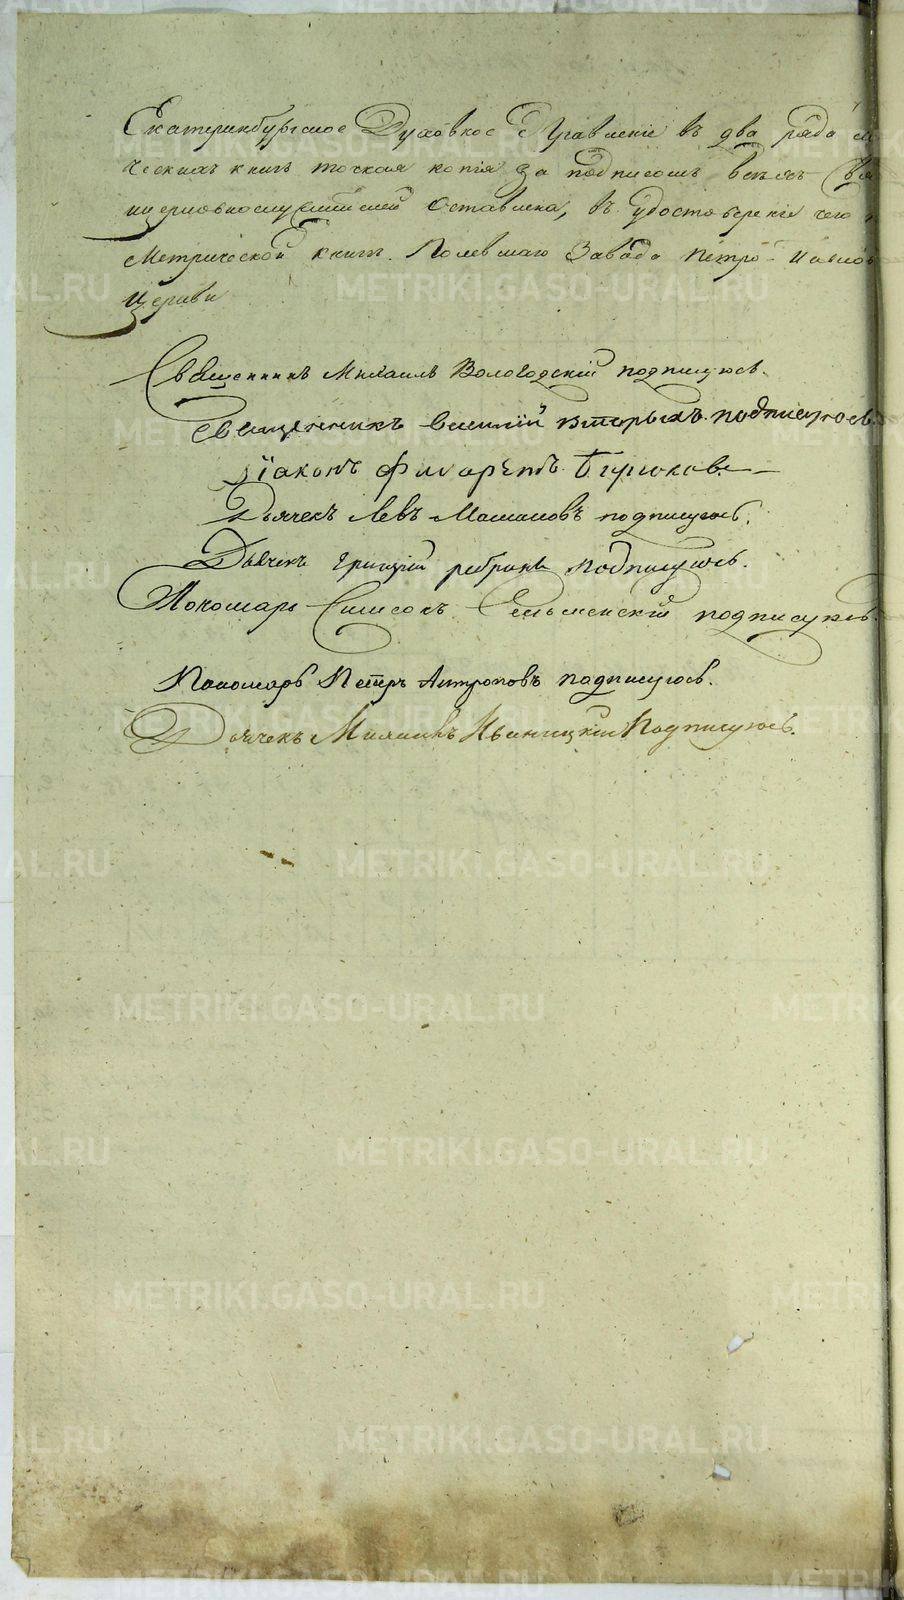 Екатеринбургское Духовное Правление въ два ряда
ческихъ книгъ точная копiя за подписомъ всехъ
ицерковнослужителей оставлена, въ удостоверенiе чего
Метрической книге Полевскаго Завода Петро-Павлов
Церкви
Священникъ Михаилъ Вологодскiй подписуюсь.
Священникъ Василiй подписуюсь.
Дiаконъ Филаретъ Бирюковъ
Дьячекъ Левъ подписуюсь.
Дьячекъ Григорiй подписуюсь.
Пономарь подписуюсь.
Пономарь Петръ Антроповъ подписуюсь.
Дьячекъ Подписуюсь.
METRIKI.GASO-URAL.RU